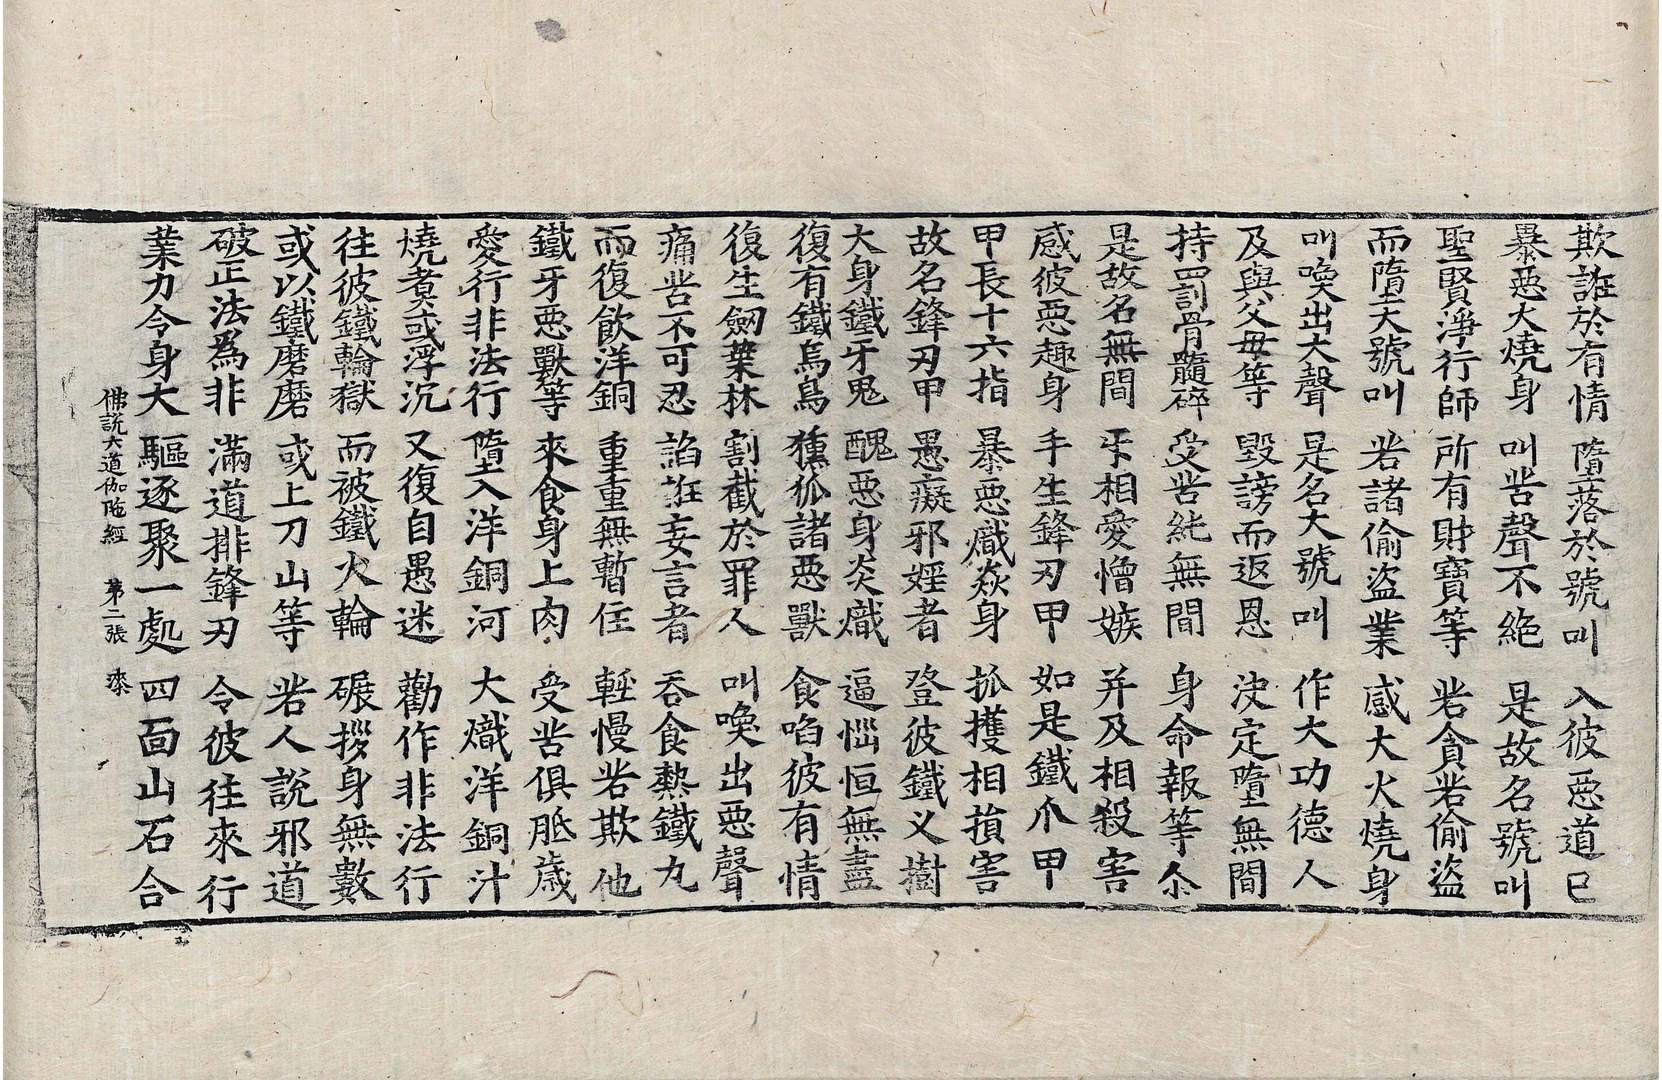 欺誑於有情 墮落於號叫 入彼惡道已
暴惡火燒身 叫苦聲不絶 是故名號叫
聖賢淨行師 所有財寶等 若貪若偷盜
而墮大號叫 若諸偷盜業 感大火燒身
叫喚出大聲 是名大號叫 作大功德人
及與父母等 毀謗而返恩 決定墮無間
持罰骨髓碎 受苦純無間 身命報等尒
是故名無間 㸦相愛憎嫉 并及相殺害
感彼惡趣身 手生鋒刃甲 如是鐵爪甲
甲長十六指 暴惡熾焱身 抓擭相損害
故名鋒刃甲 愚癡邪婬者 登彼鐵叉樹
大身鐵牙鬼 醜惡身炎熾 逼惱恒無盡
復有鐵烏鳥 獯狐諸惡獸 食啗彼有情
復生劒葉林 割截於罪人 叫喚出惡聲
痛苦不可忍 諂誑妄言者 吞食熱鐵丸
而復飲洋銅 重重無暫住 輕慢若欺他
鐵牙惡獸等 來食身上肉 受苦俱胝歲
愛行非法行 墮入洋銅河 大熾洋銅汁
燒煮或浮沉 又復自愚迷 勸作非法行
往彼鐵輪獄 而被鐵火輪 碾拶身無數
或以鐵磨磨 或上刀山等 若人說邪道
破正法為非 滿道排鋒刃 令彼往來行
業力令身大 驅逐聚一處 四面山石合
佛說六道伽陁經 第二張 漆